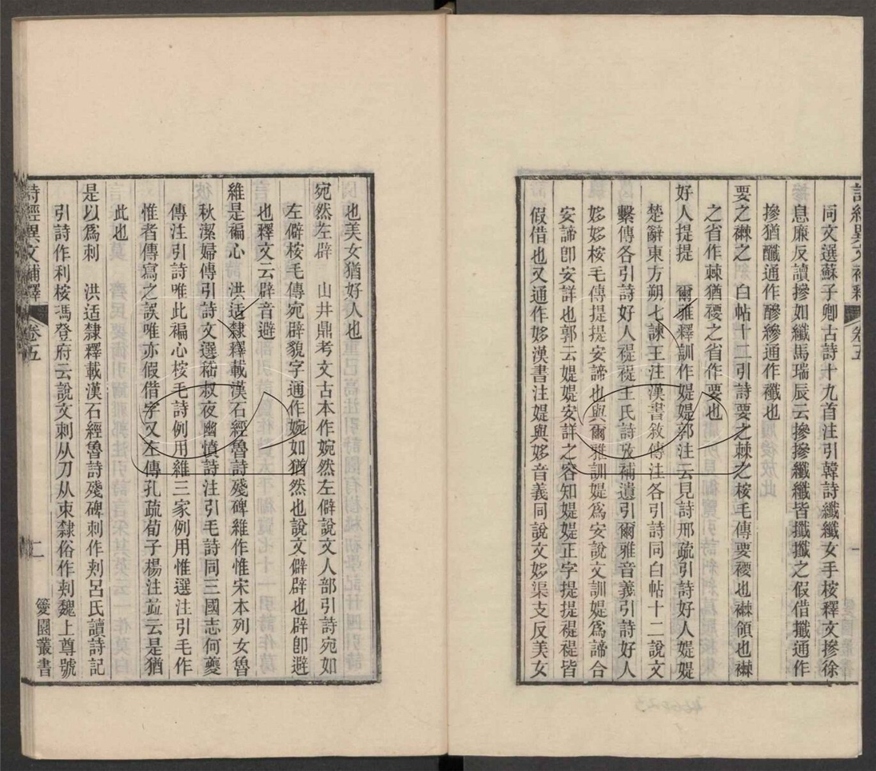 詩經異文補釋 卷五 一
同文選蘇子卿古詩十九首注引韓詩纖纖女手桉釋文摻徐
息廉反讀摻如纖馬瑞辰云摻摻纖纖皆攕攕之假借攕通作
摻猶醶通作醦縿通作襳也
要之襋之 白帖十二引詩要之棘之桉毛傳要褄也襋領也襋
之省作棘猶褄之省作要也
好人提提 爾雅釋訓作媞媞郭注云見詩邢疏引詩好人媞媞
楚辭東方朔七諫王注漢書敘傳注各引詩同白帖十二說文
繫傳各引詩好人褆褆王氏詩攷補遺引爾雅音義引詩好人
姼姼桉毛傳提提安諦也與爾雅訓媞爲安說文訓媞爲諦合
安諦卽安詳也郭云媞媞安詳之容知媞媞正字提提褆褆皆
假借也又通作姼漢書注媞與姼音義同說文姼渠支反美女
也美女猶好人也
宛然左辟 山井鼎考文古本作婉然左僻說文人部引詩宛如
左僻桉毛傳宛辟貌字通作婉如猶然也說文僻辟也辟卽避
也釋文云辟音避
維是褊心 洪适隸釋載漢石經魯詩殘碑維作惟宋本列女魯
秋潔婦傳引詩文選嵇叔夜幽憤詩注引毛詩同三國志何夔
傳注引詩唯此褊心桉毛詩例用維三家例用惟選注引毛作
惟者傳寫之誤唯亦假借字又左傳孔疏荀子楊注竝云是猶
此也
是以爲刺 洪适隸釋載漢石經魯詩殘碑刺作刾呂氏讀詩記
引詩作利桉馮登府云說文刺从刀从朿隸俗作刾魏上尊號
詩經異文補釋 卷五 二 籑園叢書